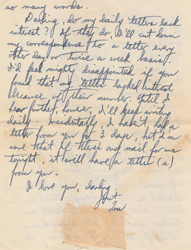 so many words.
Darling, do my daily letters lack
interest? If they do, I'll cut down
my correspondence to a letter every
other day or twice a week basis.
I'd feel mighty disappointed if you
found that my letters lacked interest
because of their number. Until I
hear further, however, I'll keep writing
daily. Incidentally, I hadn't had a
letter from you for 3 days, but I'm
sure that if there's any mail for me
tonight, it will have a letter (s)
from you.
I love you, darling